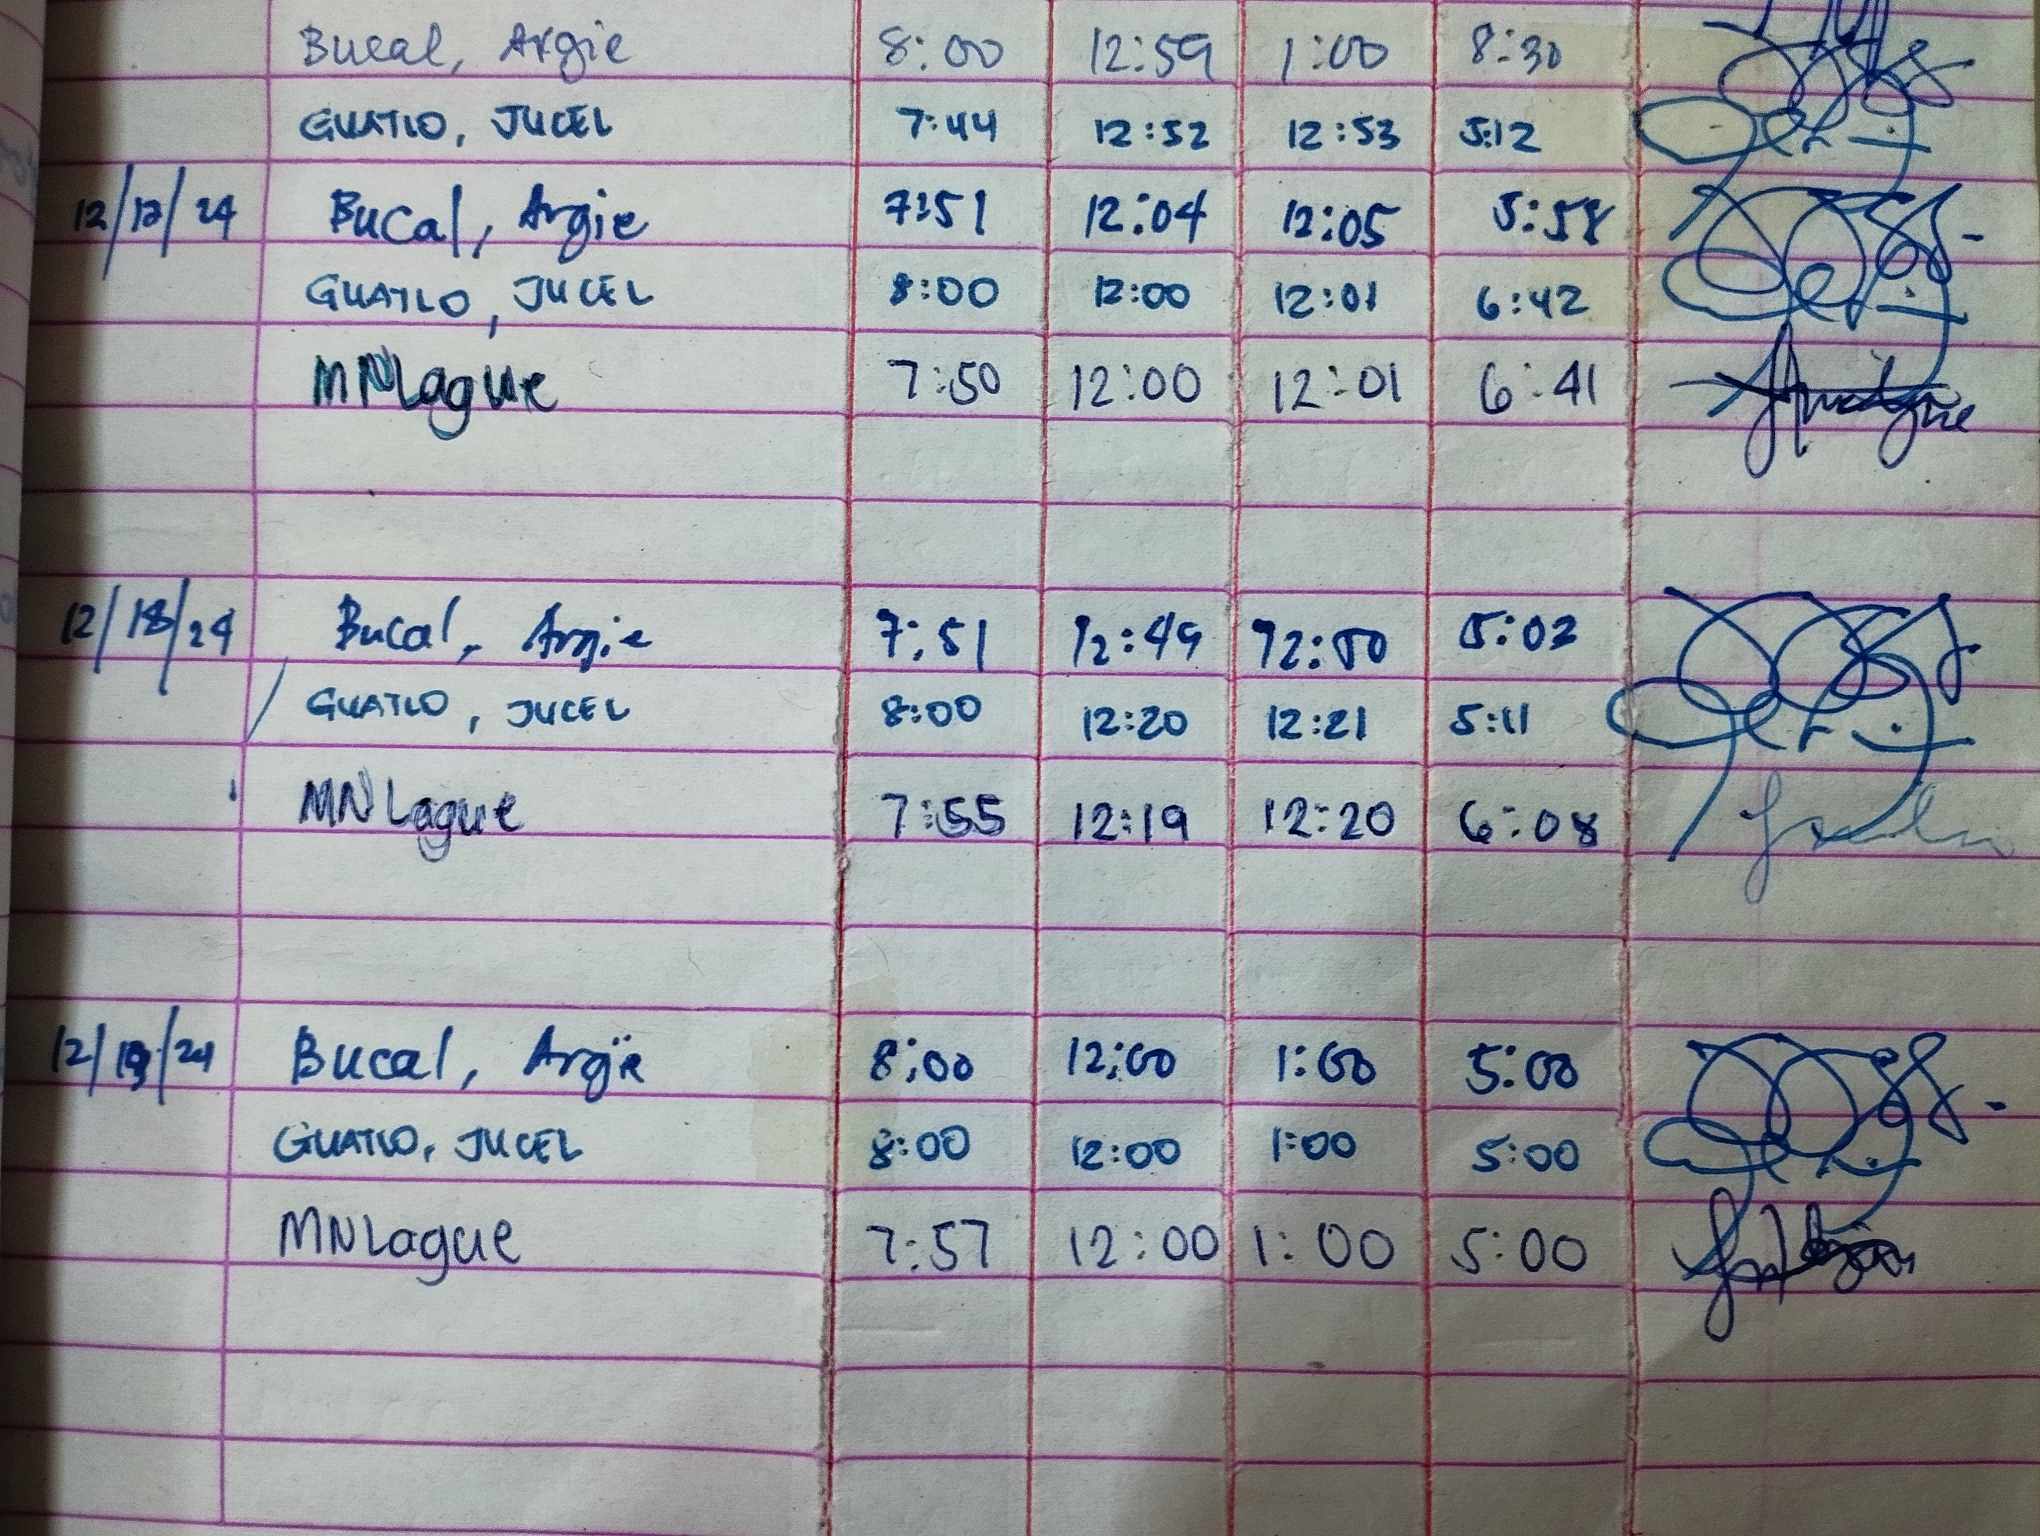 Bucal, Argie 8:00 12:59 1:00 8:30
GUATLO, JUCEL 7:44 12:52 12:53 5:12
12/12/24 Bucal, Argie 7:51 12:04 12:05 5:58
GUATLO, JUCEL 8:00 12:00 12:01 6:42
MNLague 7:50 12:00 12:01 6:41
12/18/24 Bucal, Argie 7:51 12:49 12:50 5:02
GUATLO, JUCEL 8:00 12:20 12:21 5:11
MNLague 7:55 12:19 12:20 6:08
12/19/24 Bucal, Argie 8:00 12:00 1:00 5:00
GUATLO, JUCEL 8:00 12:00 1:00 5:00
MNLague 7:57 12:00 1:00 5:00